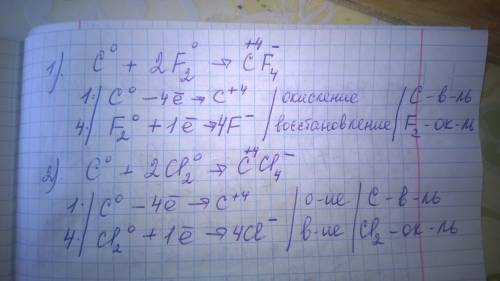 1). C⁰ + 2F₂⁰ → C⁺⁴F₄⁻
1·/ C⁰ − 4ē → C⁺⁴ / окисление / C - в-ль
4·/ F₂⁰ + 1ē → 4F⁻ / восстановление / F₂ - ок-ль
2) C⁰ + 2Cl₂⁰ → C⁺⁴Cl₄⁻
1·/ C⁰ − 4ē → C⁺⁴ / о-ие / C - в-ль
4·/ Cl₂⁰ + 1ē → 4Cl⁻ / в-ие / Cl₂ - ок-ль